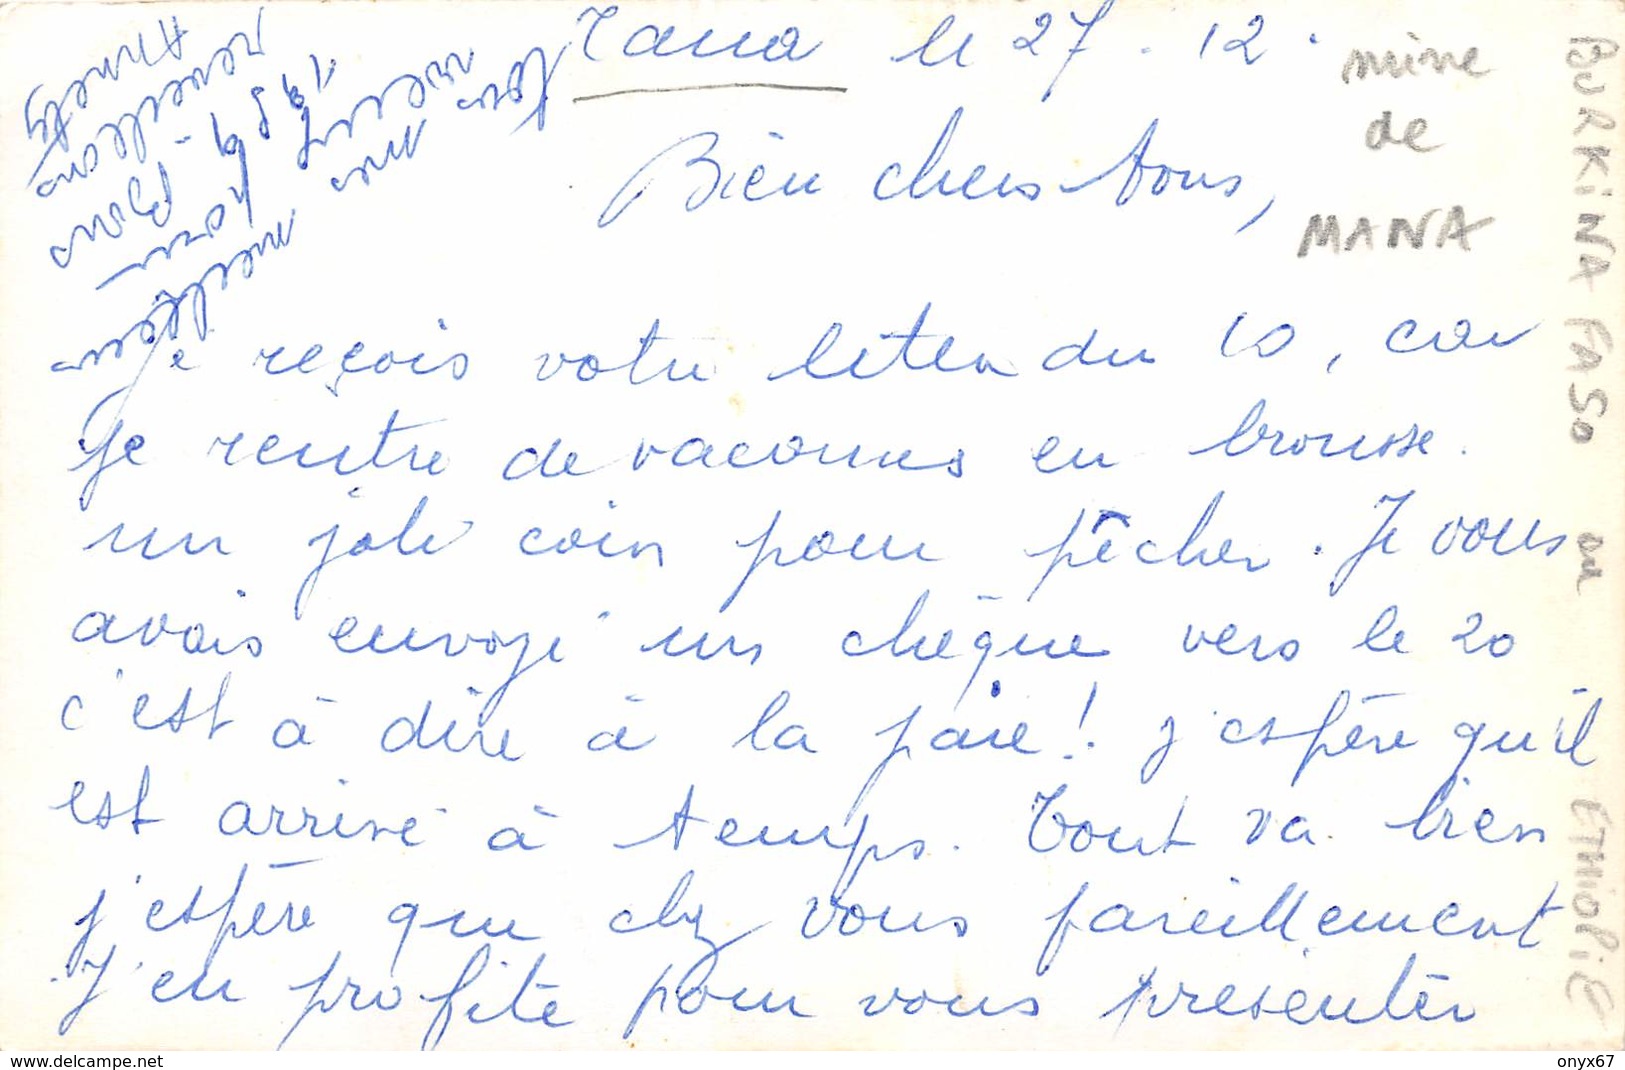 Tana le 27.12.
Bien chers tous,
Je reçois votre letter du 10, car
je rentre de vacances en brousse.
un joli coin pour pêcher. Je vous
avais envoyé un chèque vers le 20
c'est à dire à la paie! j'espère qu'il
est arrivé à temps. Tout va bien
j'espère que chez vous pareillement
J'en profite pour vous présenter
mes
mine
de
MANA
BURKINA FASO ou ETHIOPIE
Delcampe.net
onyx67